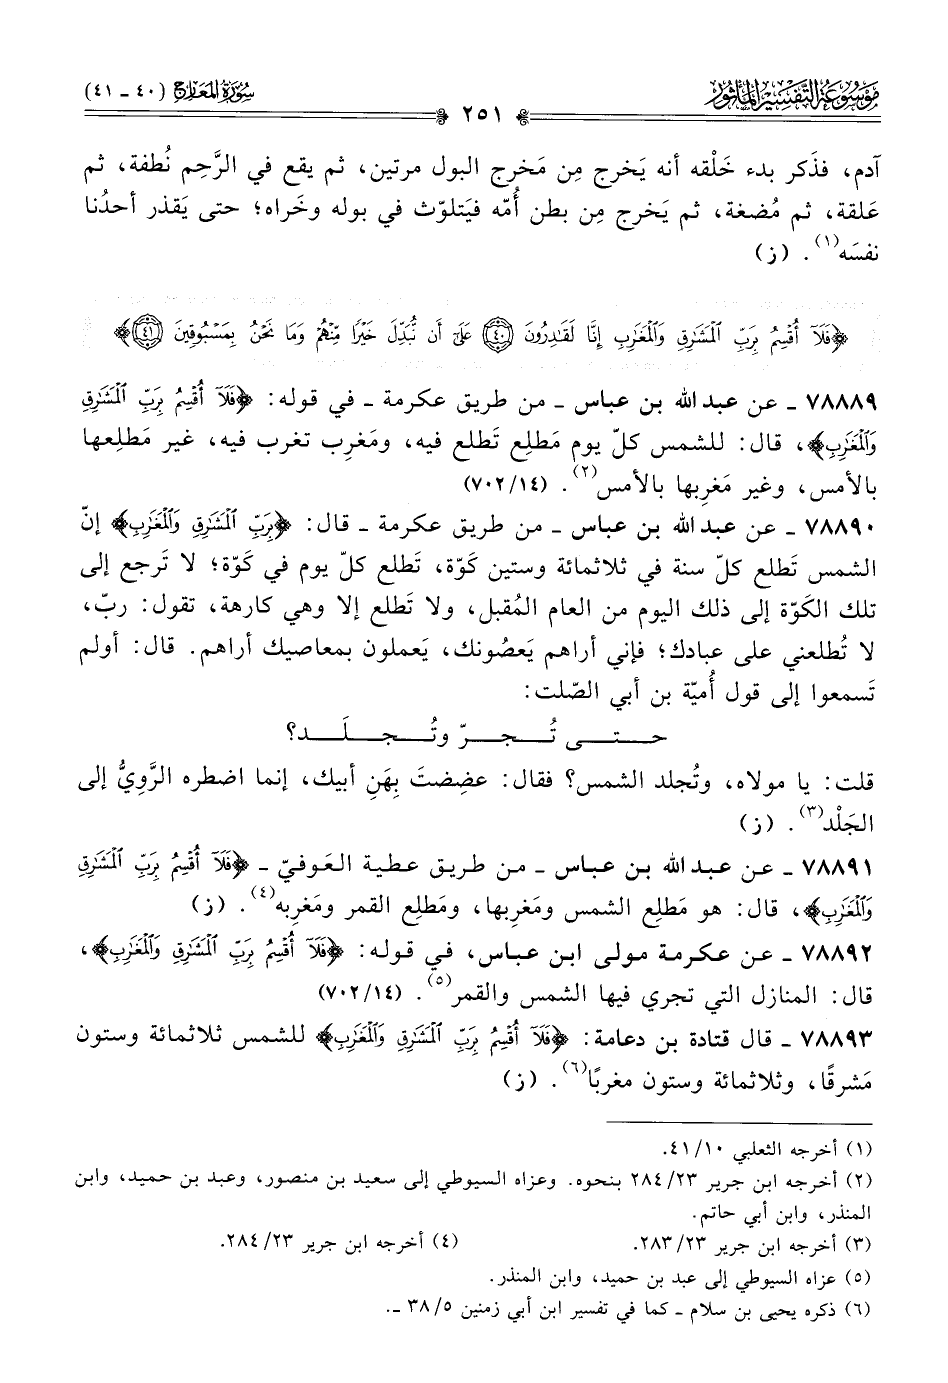 مَوْسُوعَة التَّفْسِير المَأْثُور
سُورَة المَعَارِج (٤٠ - ٤١)
٢٥١
آدم، فذَكر بدء خَلْقه أنه يَخرج مِن مَخرج البول مرتين، ثم يقع في الرَّحِم نُطفة، ثم
عَلقة، ثم مُضغة، ثم يَخرج مِن بطن أُمّه فيَتلوّث في بوله وخَراه؛ حتى يَقذر أحدُنا
نفسَه(١). (ز)
﴿فَلَآ أُقْسِمُ بِرَبِّ ٱلْمَشَٰرِقِ وَٱلْمَغَٰرِبِ إِنَّا لَقَٰدِرُونَ ٤٠ عَلَىٰٓ أَن نُّبَدِّلَ خَيْرًا مِّنْهُمْ وَمَا نَحْنُ بِمَسْبُوقِينَ ٤١﴾
٧٨٨٨٩ - عن عبد الله بن عباس - من طريق عكرمة - في قوله: ﴿فَلَآ أُقْسِمُ بِرَبِّ ٱلْمَشَٰرِقِ
وَٱلْمَغَٰرِبِ﴾، قال: للشمس كلّ يوم مَطلِع تَطلع فيه، ومَغرِب تغرب فيه، غير مَطلِعها
بالأمس، وغير مَغرِبها بالأمس(٢). (١٤/ ٧٠٢)
٧٨٨٩٠ - عن عبد الله بن عباس - من طريق عكرمة - قال: ﴿بِرَبِّ ٱلْمَشَٰرِقِ وَٱلْمَغَٰرِبِ﴾ إنّ
الشمس تَطلع كلّ سنة في ثلاثمائة وستين كَوّة، تَطلع كلّ يوم في كَوّة؛ لا تَرجع إلى
تلك الكَوّة إلى ذلك اليوم من العام المُقبل، ولا تَطلع إلا وهي كارهة، تقول: ربّ،
لا تُطلعني على عبادك؛ فإني أراهم يَعصُونك، يَعملون بمعاصيك أراهم. قال: أولم
تَسمعوا إلى قول أُميّة بن أبي الصّلت:
حـتـى تُـجـرّ وتُـجـلَـد؟
قلت: يا مولاه، وتُجلد الشمس؟ فقال: عضِضتَ بِهَنِ أبيك، إنما اضطره الرَّوِيُّ إلى
الجَلْد(٣). (ز)
٧٨٨٩١ - عن عبد الله بن عباس - من طريق عطية العَوفيّ - ﴿فَلَآ أُقْسِمُ بِرَبِّ ٱلْمَشَٰرِقِ
وَٱلْمَغَٰرِبِ﴾، قال: هو مَطلِع الشمس ومَغرِبها، ومَطلِع القمر ومَغرِبه(٤). (ز)
٧٨٨٩٢ - عن عكرمة مولى ابن عباس، في قوله: ﴿فَلَآ أُقْسِمُ بِرَبِّ ٱلْمَشَٰرِقِ وَٱلْمَغَٰرِبِ﴾،
قال: المنازل التي تجري فيها الشمس والقمر(٥). (١٤/ ٧٠٢)
٧٨٨٩٣ - قال قتادة بن دعامة: ﴿فَلَآ أُقْسِمُ بِرَبِّ ٱلْمَشَٰرِقِ وَٱلْمَغَٰرِبِ﴾ للشمس ثلاثمائة وستون
مَشرقًا، وثلاثمائة وستون مغربًا(٦). (ز)
(١) أخرجه الثعلبي ١٠/ ٤١.
(٢) أخرجه ابن جرير ٢٣/ ٢٨٤ بنحوه. وعزاه السيوطي إلى سعيد بن منصور، وعبد بن حميد، وابن
المنذر، وابن أبي حاتم.
(٣) أخرجه ابن جرير ٢٣/ ٢٨٣. (٤) أخرجه ابن جرير ٢٣/ ٢٨٤.
(٥) عزاه السيوطي إلى عبد بن حميد، وابن المنذر.
(٦) ذكره يحيى بن سلام - كما في تفسير ابن أبي زمنين ٥/ ٣٨ -.